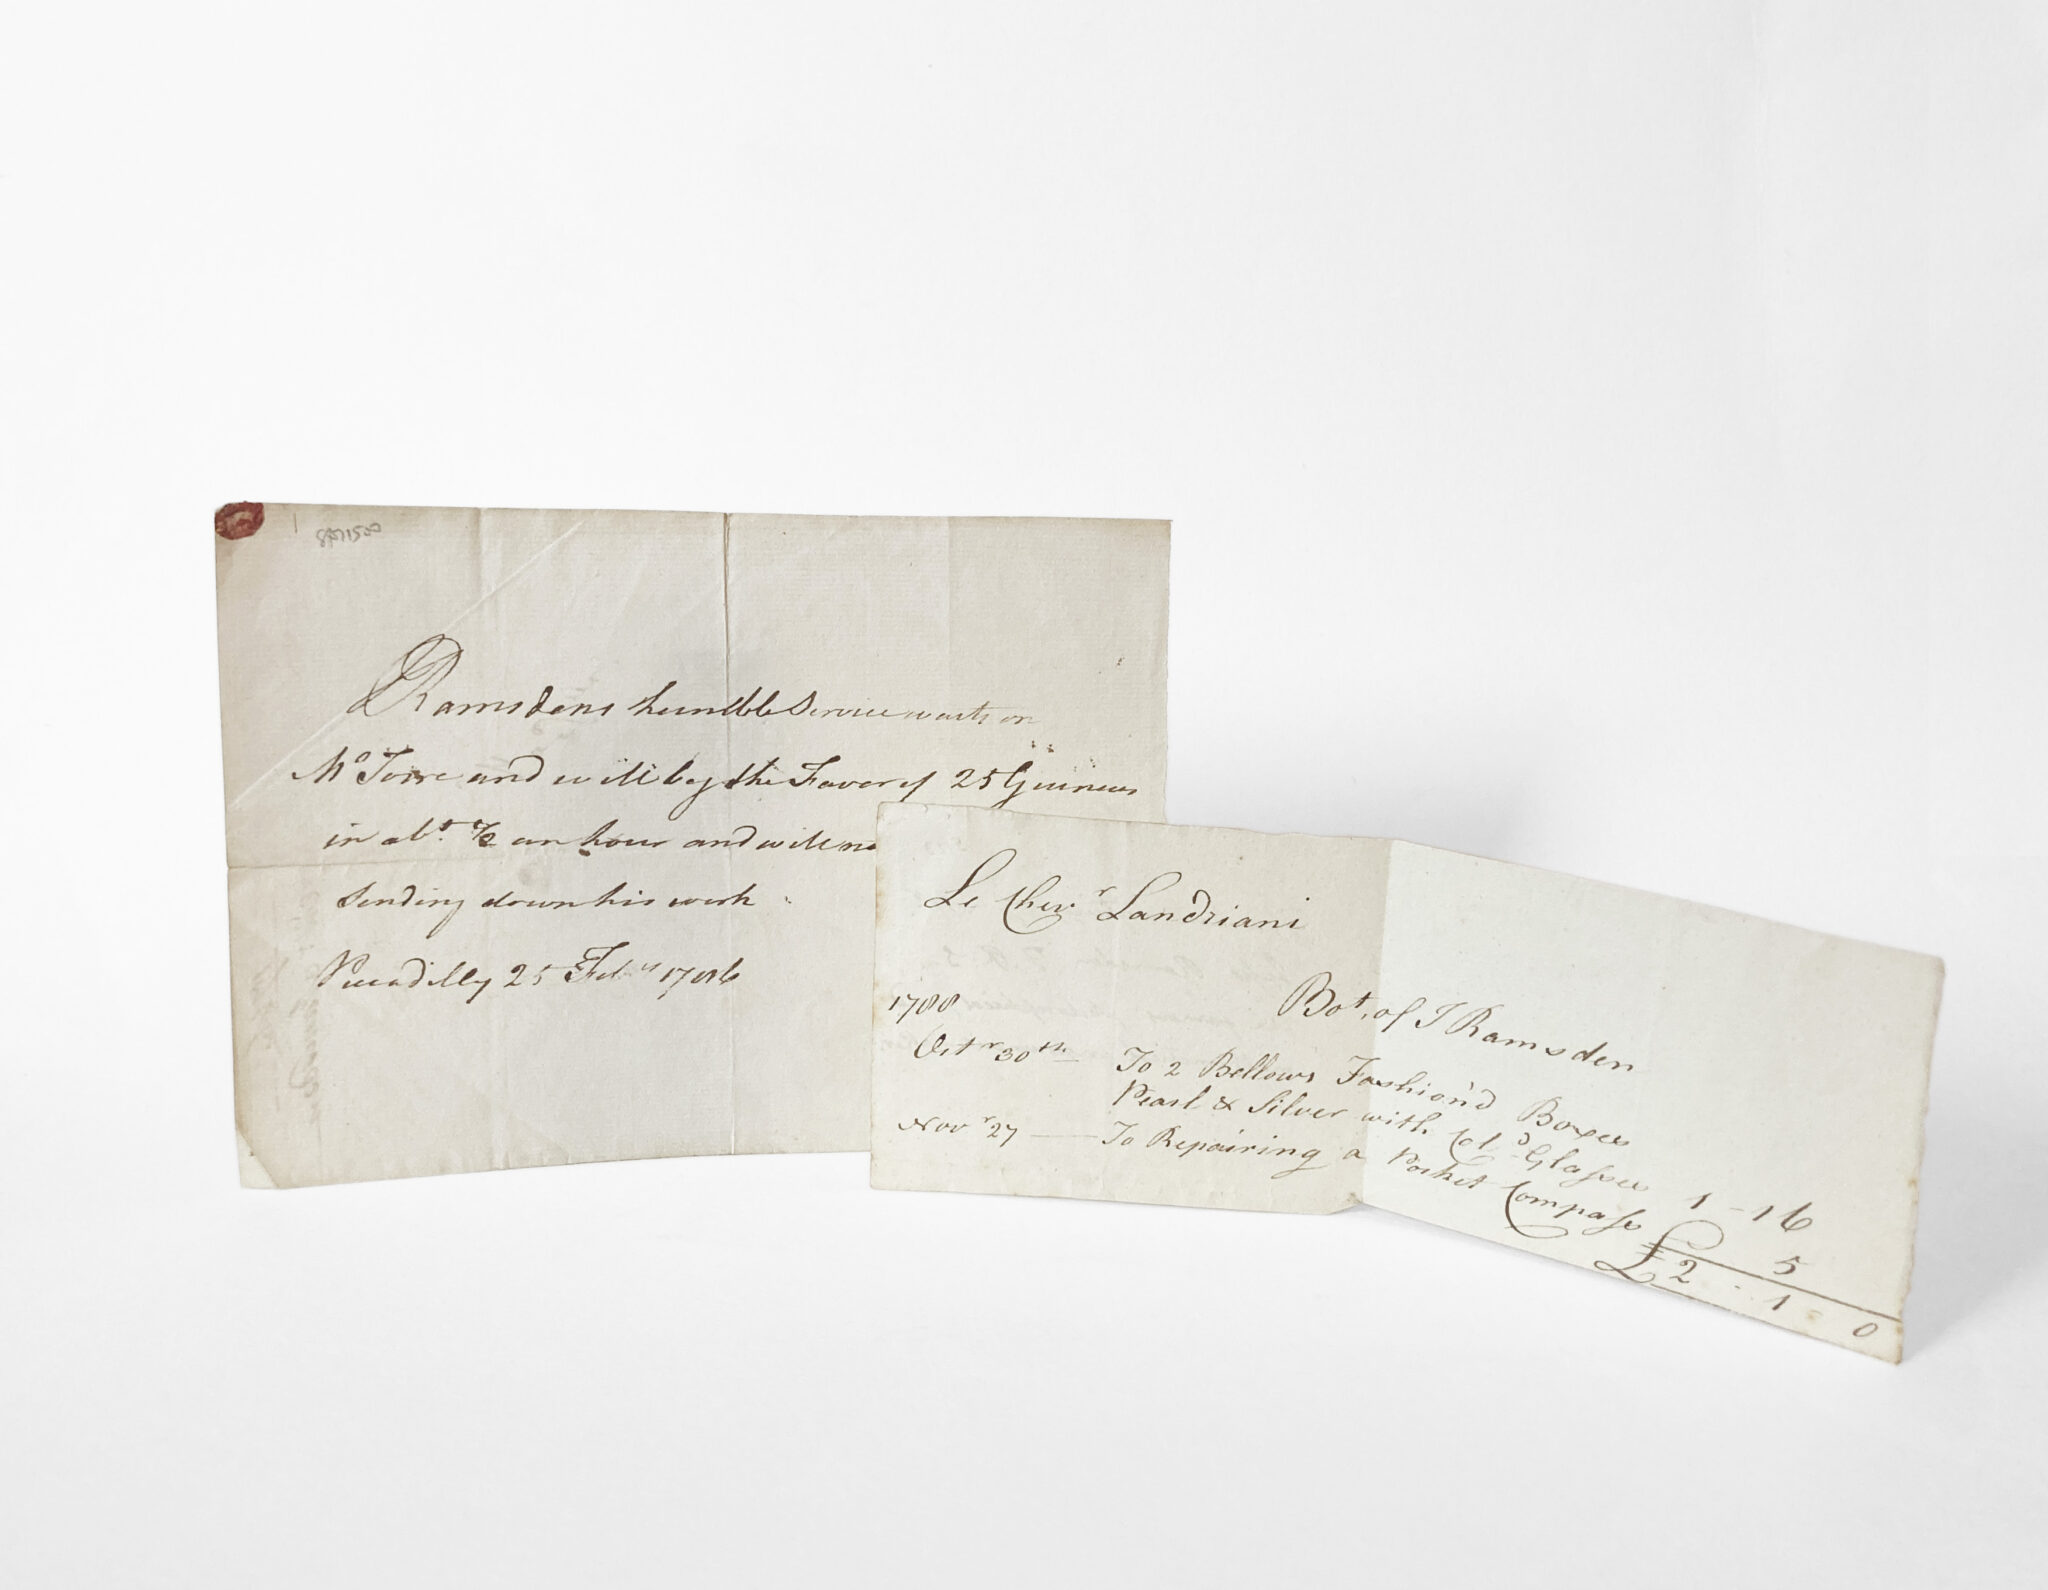 Ramsdens humble Service waits on
Mr Torre and will beg the Favor of 25 Guineas
in abt. 1/2 an hour and will
sending down his work
Piccadilly 25 Feby 1786
Le Chevr Landriani
Bot. of J Ramsden
1788
Octr 30th To 2 Bellows Fashion'd Boxes
Pearl & Silver with Cold Glasses 1 - 16
Novr 27 — To Repairing a Pocket Compass 5
£ 2 .. 1 .. 0